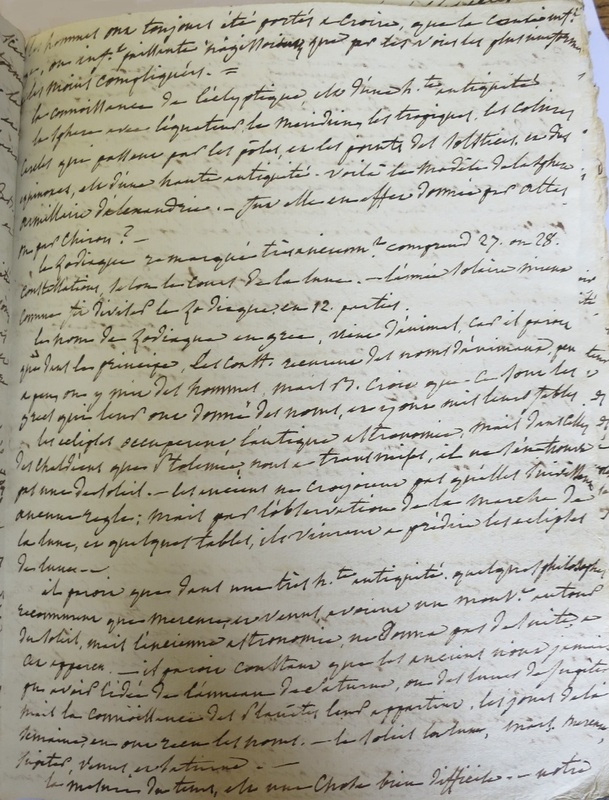 les hommes ont toujours été portés a croire, que le
les moins compliquées. =
la connoissance de l'écliptique est d'une h.te antiquité
la sphere avec l'équateur le meridien, les tropiques, les colures
cercles qui passent par les pôles, et les points des solstices, et des
equinoxes, est d'une haute antiquité. voilà le modèle de la sphere
armillaire d'alexandrie. — fut elle en effet donnée par atlas,
ou par Chiron? —
le Zodiaque remarqué très anciennem.t comprend 27. ou 28.
constellations, selon le cours de la lune. — l'année solaire
comme fit diviser le Zodiaque, en 12. parties.
les nom de Zodiaque en grec, vient d'animal, car il paroit
que dans le principe, les const. reçurent des noms d'animaux peu
a peu on y mit des hommes, mais croit que ce sont les
grecs qui leur ont donné des noms, et y ont mis leurs fables.
les eclipses occuperent l'antique astronomie, mais dans celles
des chaldéens que Ptolemée nous a transmises, il ne s'en trouve
pas une de soleil. — les anciens ne croyoient pas qu'elles suivissent
aucune regle; mais par l'observation de la marche de
la lune, et quelques tables, ils vinrent a prédire les eclipses
de lune. —
il paroit que dans une très h.te antiquité quelques philosophes
reconnurent que mercure, et Venus, avoient un mouv.t autour
du soleil, mais l'ancienne astronomie, ne donna pas de suite, a
cet apperçu. — il paroit constant que les anciens n'ont jamais
pu avoir l'idée de l'anneau de saturne, ou des lunes de Jupiter
mais la connoissance des Planètes leur appartint. les jours de la
semaine, en ont reçu les noms. — le soleil la lune, mars, mercure,
Jupiter, Venus, et Saturne. —
la mesure du tems, est une chose bien difficile. — notre